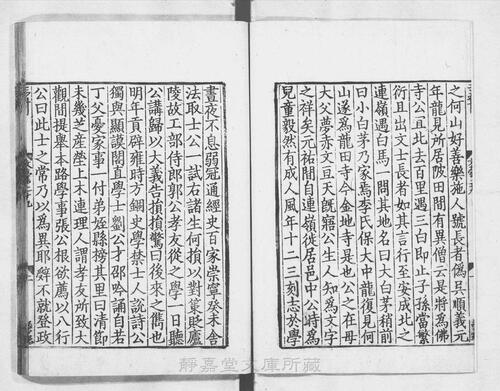 之何山好善樂施人號長者僞吳順義元
年龍見所居陂田間有異僧云是將為佛
寺公且北去百里遇三白即止子孫當繁
衍且出文士長者如其言行至安成北之
連嶺遇白馬一問其地名曰大白茅稍前
曰小白茅乃家焉李氏保大中龍復見何
山遂為龍田寺今金地寺是也公之在母
大父夢赤文亘天既寤公生人知為文字
之祥矣元祐間自連嶺徙居邑中公時為
兒童毅然有成人風年十二三刻志於學
晝夜不息弱冠通經史百家崇寧癸未告
法取士公一試右諸生何損以對策貶廬
陵故工部侍郎郭公孝友從之學一日聽
公講歸以大義告損損驚曰後來之儁也
明年貢辟雍時方錮史學禁士人說詩公
獨與顯謨閣直學士劉公才邵吟誦自若
丁父憂家事一付弟姪縣榜其里曰清節
未幾芝產塋上木連理人謂孝友所致大
觀間提舉本路學事張公根欲薦以八行
公曰此士之常乃以為異耶辭不就登政
靜嘉堂文庫所藏